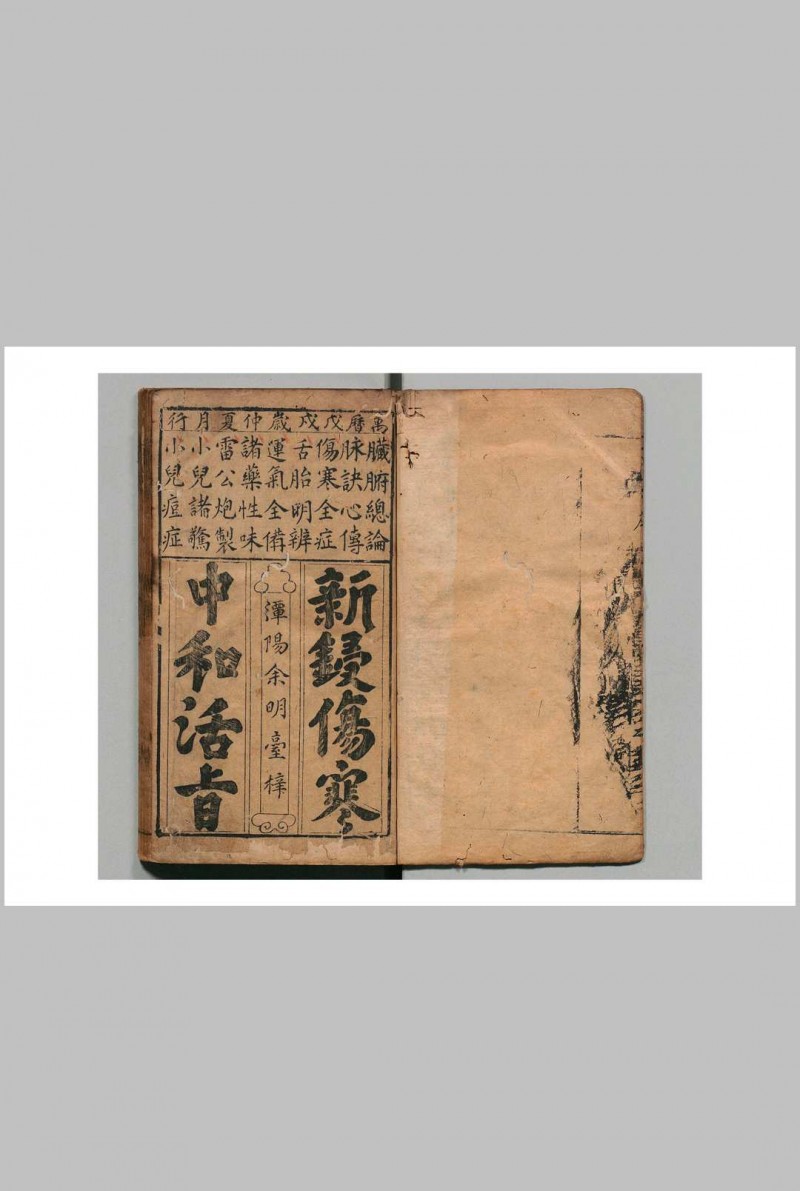 萬曆戊戌歲仲夏月行
臟腑總論
脉訣心傳
傷寒全症
舌胎明辨
運氣全備
諸藥性味
雷公炮製
小兒諸驚
小兒痘症
新鋟傷寒
潭陽余明臺梓
中和活旨